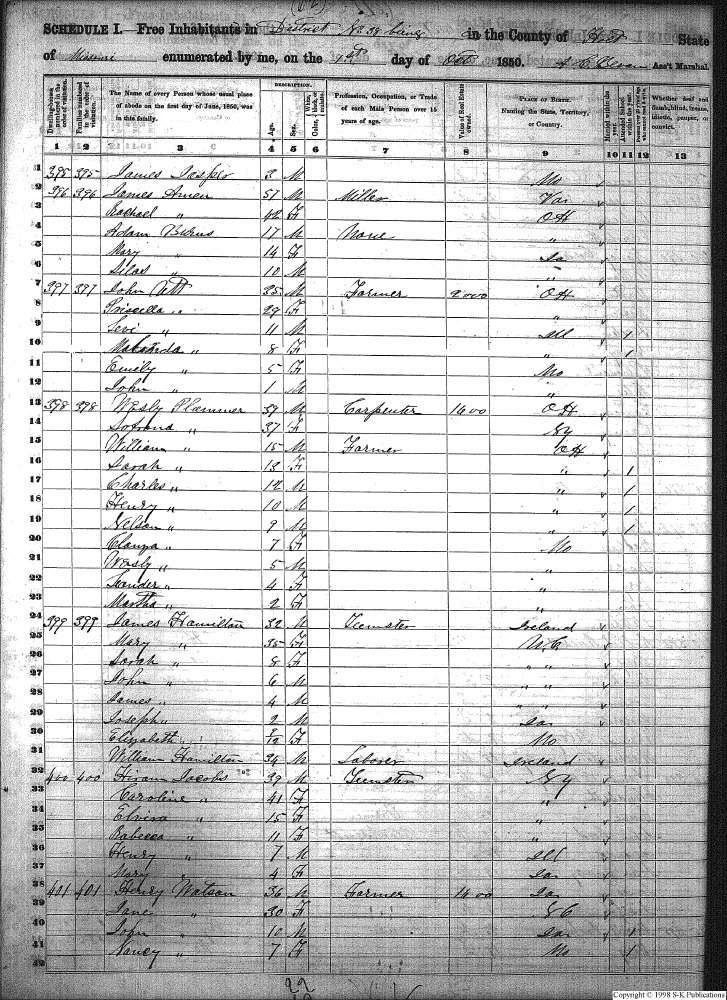 SCHEDULE I.—Free Inhabitants in District No 39 being in the County of Holt State
of Missouri enumerated by me, on the day of Oct 1850. Ass't Marshal.
DESCRIPTION.
Dwelling-houses numbered in the order of visitation.
Families numbered in the order of visitation.
The Name of every Person whose usual place of abode on the first day of June, 1850, was in this family.
Age.
Sex.
Color, White, black, or mulatto.
Profession, Occupation, or Trade of each Male Person over 15 years of age.
Value of Real Estate owned.
PLACE OF BIRTH. Naming the State, Territory, or Country.
Married within the year.
Attended School within the year.
Whether deaf and dumb, blind, insane, idiotic, pauper, or convict.
1 2 3 4 5 6 7 8 9 10 11 12 13
1 395 395 James Jasper 3 M Mo
2 396 396 James Amen 57 M Miller Va
3 Rachael " 42 F OH
4 Adam Burns 17 M None "
5 Mary " 14 F Ia
6 Silas " 10 M "
7 397 397 John Utt 35 M Farmer 2000 OH
8 Priscella " 29 F "
9 Levi " 11 M Ill 1
10 Matilda " 8 F " 1
11 Emily " 5 F Mo
12 John " 1 M "
13 398 398 Wesly Plammer 39 M Carpenter 1600 OH
14 " 37 F Ky
15 William " 15 M Farmer OH
16 Sarah " 13 F " 1
17 Charles " 12 M " 1
18 Henry " 10 M " 1
19 Nelson " 9 M " 1
20 " 7 F Mo
21 Wesly " 5 M "
22 " 4 F "
23 Martha " 2 F "
24 399 399 James Hamilton 32 M Teemster Ireland
25 Mary " 35 F N.C
26 Sarah " 8 F " "
27 John " 6 M
28 James " 4 M " "
29 Joseph " 2 M Ia
30 Elizabeth " F Mo
31 William Hamilton 34 M Laborer Ireland
32 400 400 Hiram Jacobs 39 M Teemster Ky
33 Caroline " 41 F "
34 Elvira " 15 F "
35 Rabecca " 11 F "
36 Henry " 7 M Ill
37 Mary " 4 F Ia
38 401 401 Henry Watson 36 M Farmer 1600 Ia
39 Jane " 30 F
40 John " 10 M Ia 1
41 Nancy " 7 F Mo 1
42
Copyright © 1998 S-K Publications